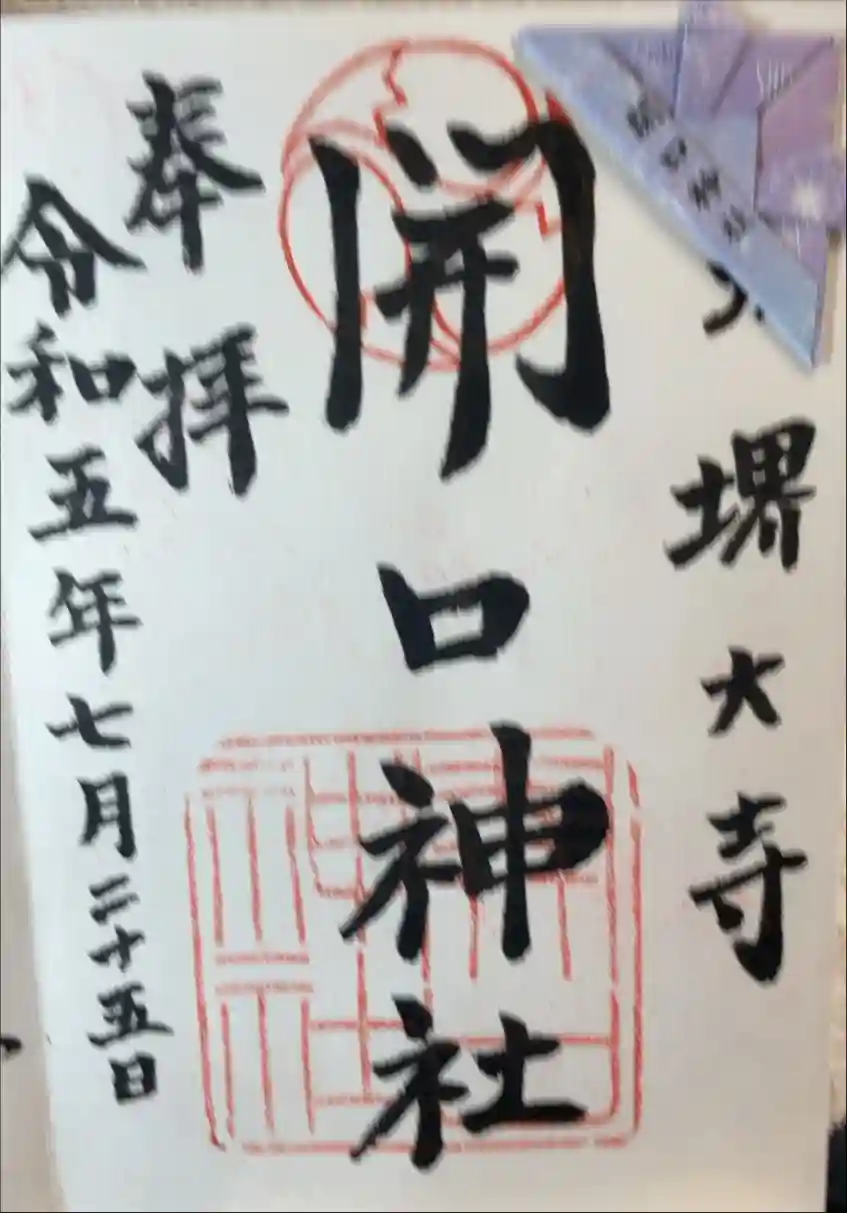 堺大寺
開口神社
奉拝
令和五年七月二十五日